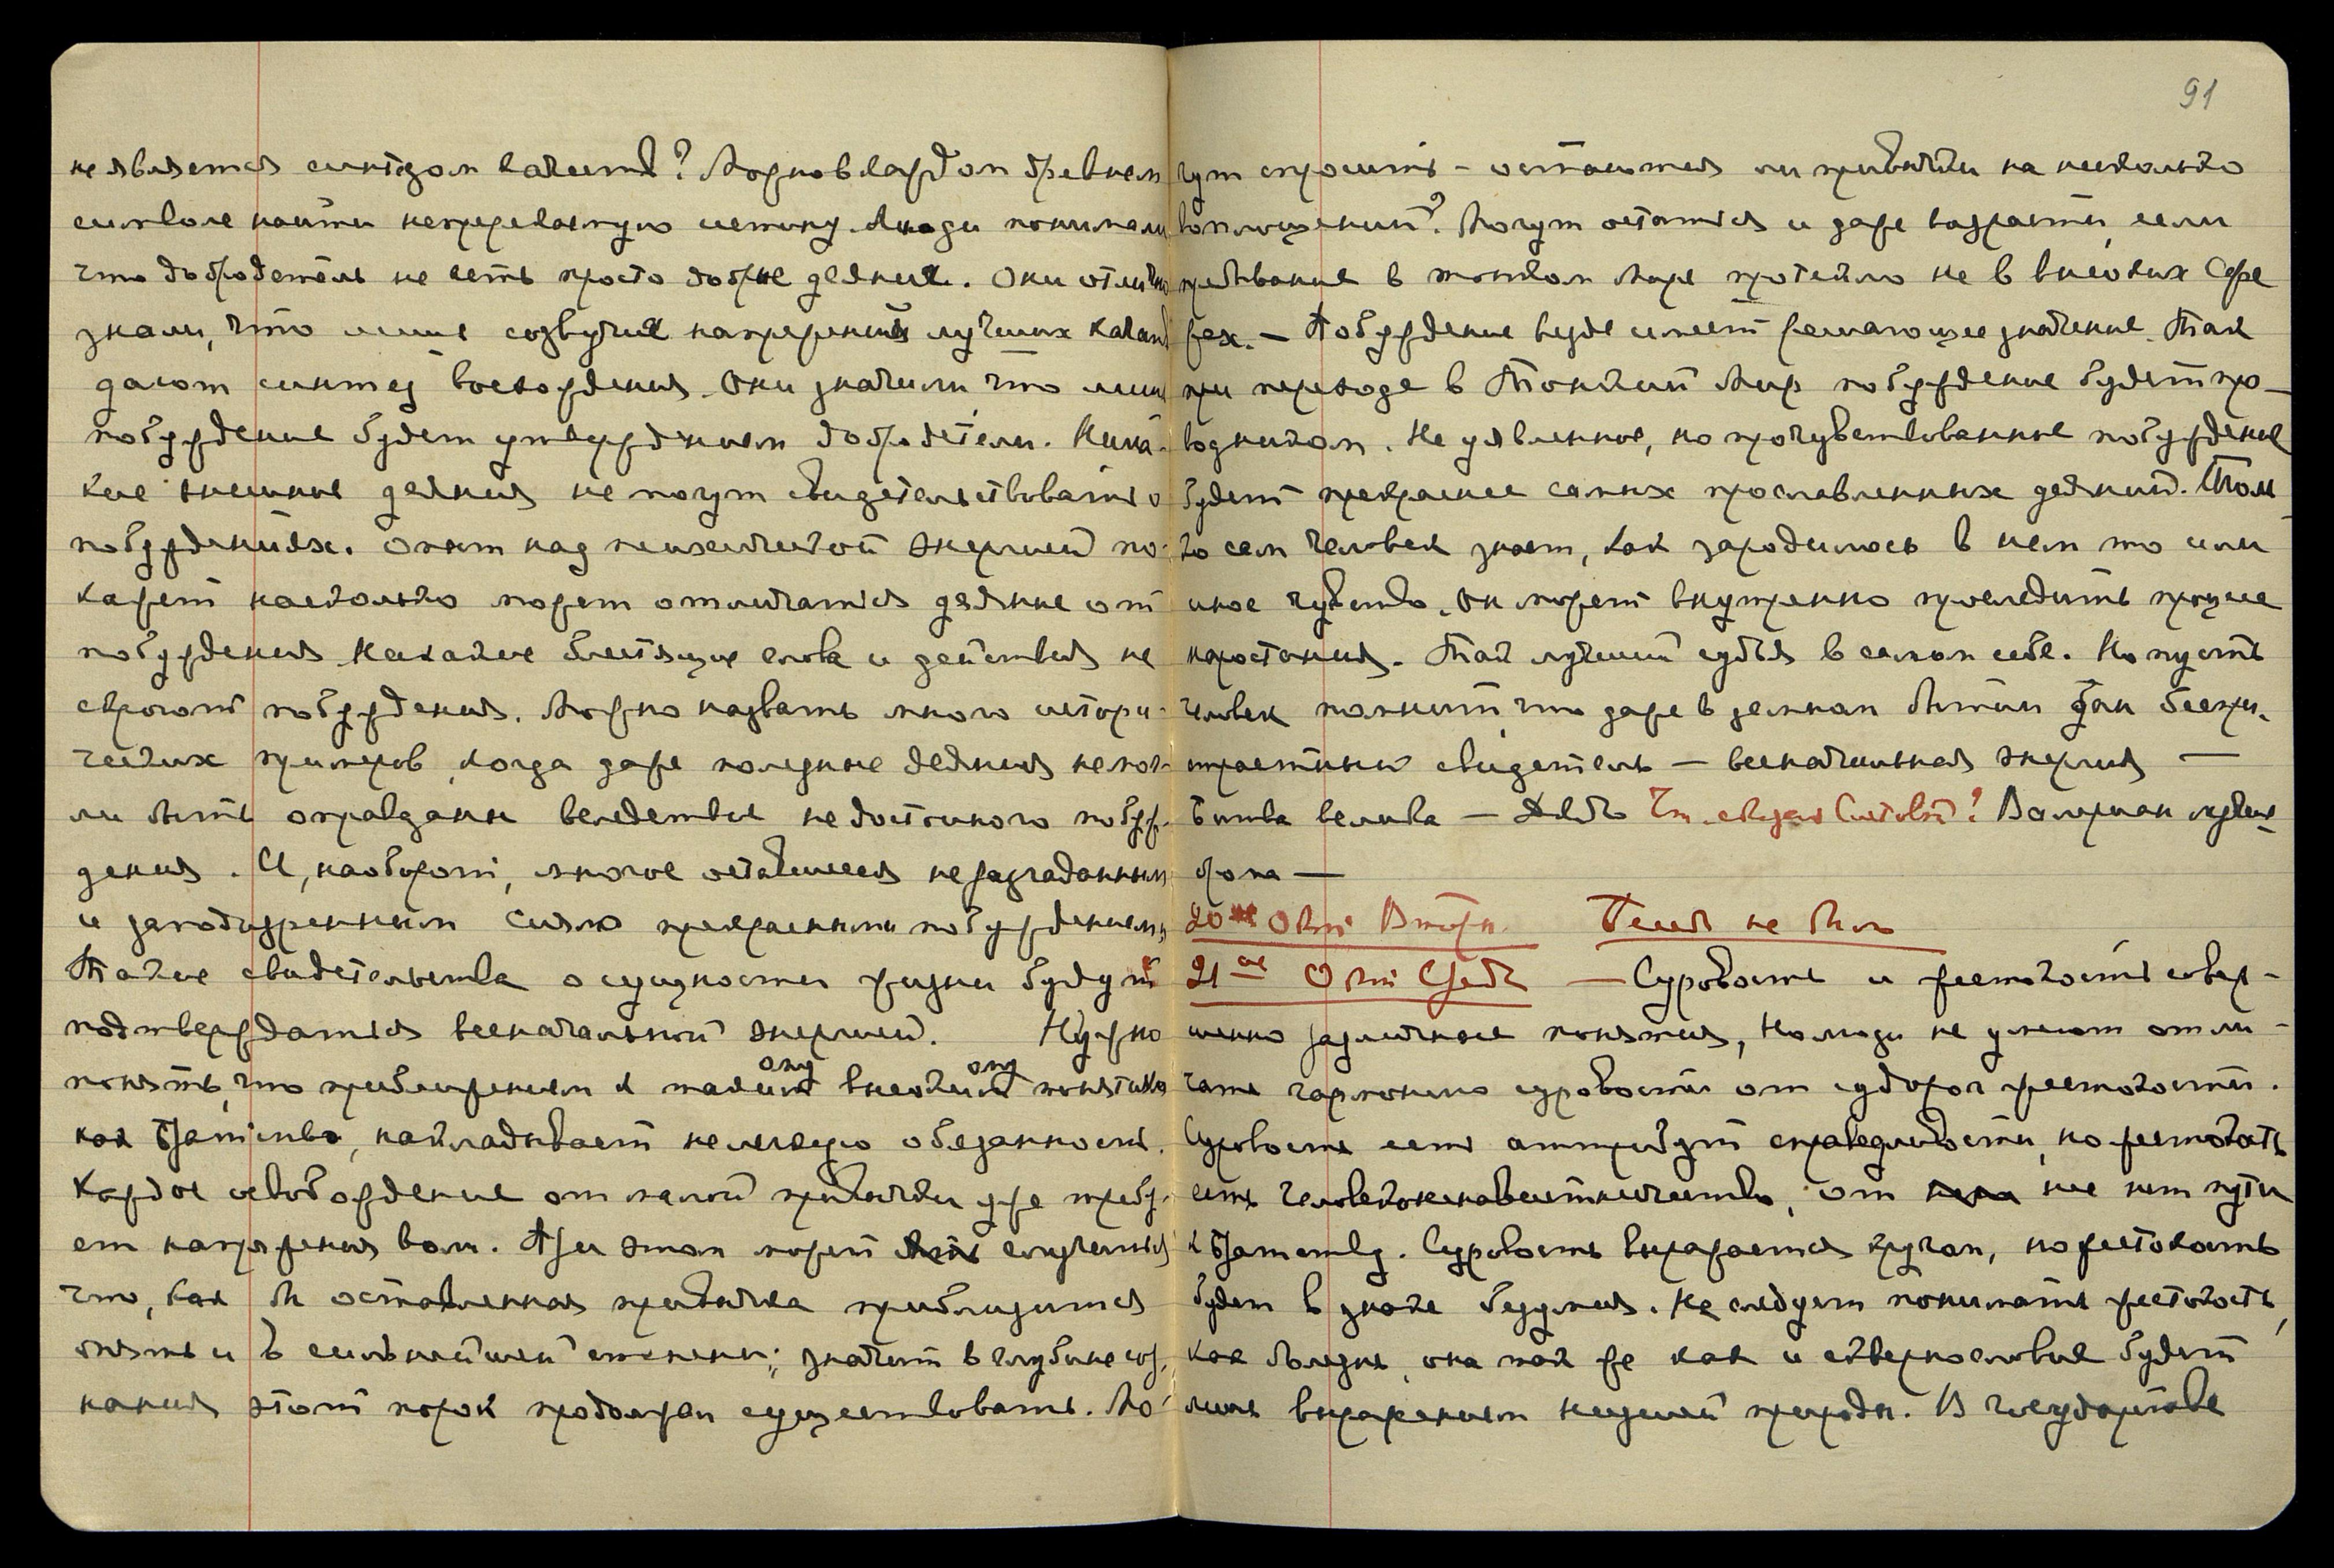 не является синтезом качеств? Можно в каждом древнем
символе найти непререкаемую истину. Люди понимали
что добродетель не есть просто добрые деяния. Они отлично
знали, что лишь созвучия напряжений лучших качеств
дают синтез восхождения. Они знали что лишь
побуждение будет утверждением добродетели. Ника-
кие внешние деяния не могут свидетельствовать о
побуждениях. Опыт над психической энергией по-
кажет насколько может отличаться деяние от
побуждения. Никакие блестящие слова и действия не
скроют побуждения. Можно назвать много истори-
ческих примеров, когда даже полезные деяния не мог-
ли быть оправданы вследствие недостойного побуж-
дения. И, наоборот, многое оставшееся неразгаданным
и заподозренным сияло прекрасными побуждениями
Такие свидетельства о сущности жизни будут
подтверждаться всеначальной энергией. Нужно
понять, что приближение к такому высокому понятию
как Братство, накладывает нелегкую обязанность.
Каждое освобождение от малой привычки уже требу-
ет напряжения воли. При этом может случиться
что, как бы оставленная привычка приблизится
опять и в сильнейшей степени; значит в глубине соз-
нания этот порок продолжал существовать. Мо-
91
гут спросить – остаются ли привычки на несколько
воплощений? Могут остаться и даже возрасти, если
пребывание в тонком Мире протекло не в высоких Сфе
рах. – Побуждение везде имеет решающее значение. Так
при переходе в Тонкий Мир побуждение будет про-
водником. Не уявленное, но прочувствованное побуждение
будет прекраснее самых прославленных деяний. Толь
ко сам человек знает, как зародилось в нем то или
иное чувство. Он может внутренно проследить процесс
нарастания. Так лучший судья в самом себе. Но пусть
человек помнит, что даже в земном бытии дан беспри-
страстный свидетель – всеначальная энергия –
Битва велика –
20ое Окт Вторн. Бесед не было
21ое Окт Среда – Суровость и жестокость совер-
шенно различные понятия, но люди не умеют отли-
чать гармонию суровости от судорог жестокости.
Суровость есть аттрибут справедливости, но жестокость
есть человеконенавистничество, от нее нет пути
к Братству. Суровость выражается кругом, но жестокость
будет в знаке безумия. Не следует понимать жестокость,
как болезнь, она так же как и сквернословие будет
лишь выражением низшей природы. В государстве